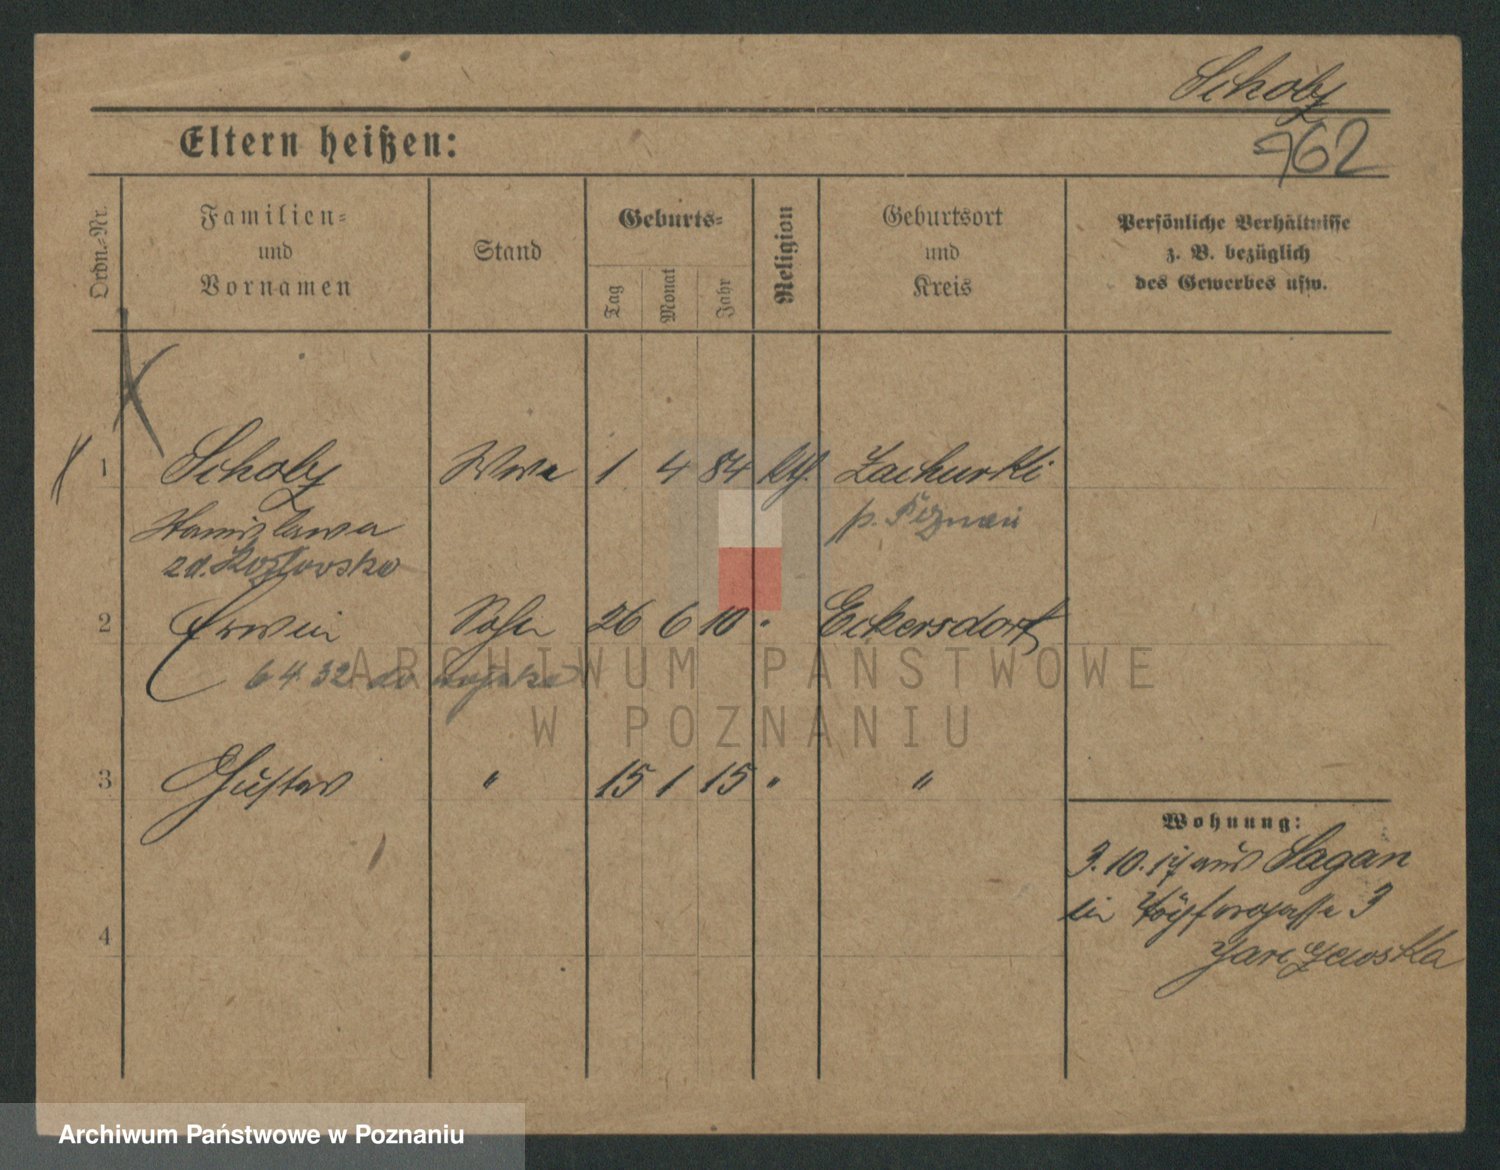 Scholz
962
Eltern heißen:
Ordn.-Nr.
Familien-
und
Vornamen
Stand
Geburts-
Tag
Monat
Jahr
Religion
Geburtsort
und
Kreis
Persönliche Verhältnisse
z. B. bezüglich
des Gewerbes usw.
1 Scholz Wwe 1 4 84 kth. Zachurki
Stanislawa p. Poznań
zd. Kozlovska
2 Erwin Sohn 26 6 10 " Eckersdorf
6 4 32 do wojska
3 Gustav " 15 1 15 " "
Wohnung:
3. 10. aus Sagan
in 3
4
ARCHIWUM PAŃSTWOWE
W POZNANIU
Archiwum Państwowe w Poznaniu